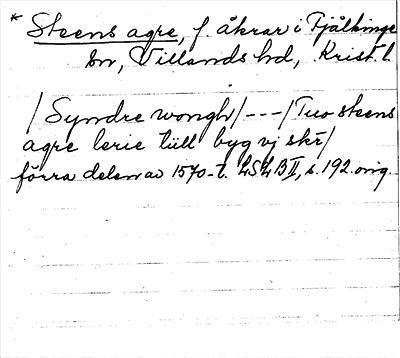 * Steens agre, f. åkrar i Fjälkinge
sn, Villands hd, Krist. l.
/Syndre wongh/---/Tuo steens
agre lerie tüll byg vj skr/
förra delen av 1570-t. LSLB II, s. 192. orig.